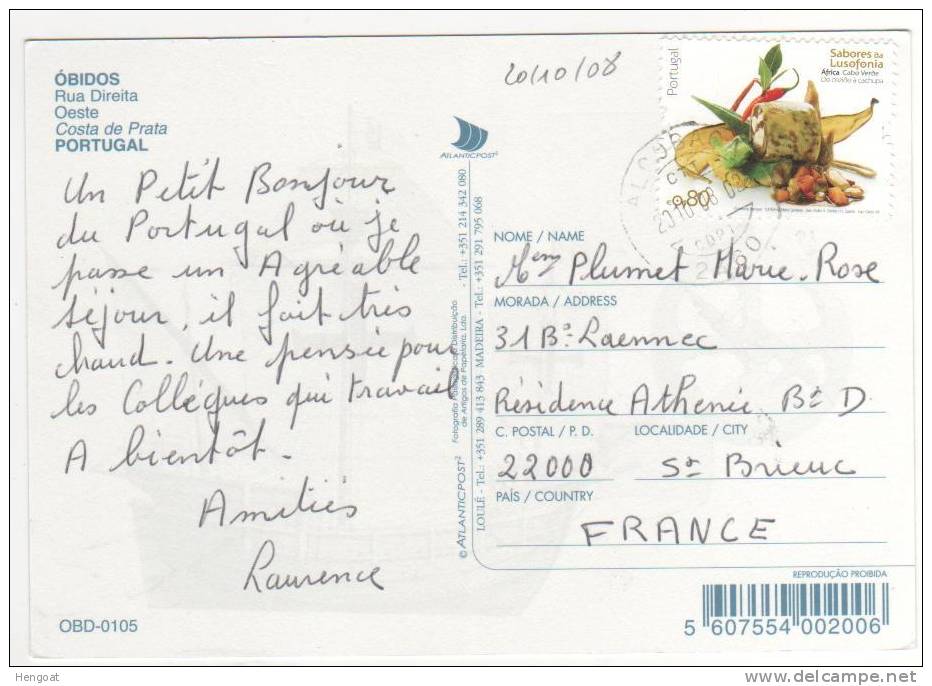 ÓBIDOS
Rua Direita
Oeste
Costa de Prata
PORTUGAL
Un Petit Bonjour
du Portugal où je
passe un Agréable
séjour, il fait très
chaud. Une pensée pour
les Collègues qui travail
A bientôt.
Amitiés
Laurence
OBD-0105
ATLANTICPOST²
© ATLANTICPOST²
LOULÉ - Tel.: +351 289 413 843 MADEIRA - Tel.: +351 291 795 068
de Artigos de Papelaria, Lda.
- Tel.: +351 214 342 080
20/10/08
Portugal
Sabores da
Lusofonia
África Cabo Verde
Do pelão à cachupa
€0,80
NOME / NAME
Mem Plumet Marie-Rose
MORADA / ADDRESS
31 Bd Laennec
Résidence Athenie Bt D
C. POSTAL / P. D.
LOCALIDADE / CITY
22000 St Brieuc
PAÍS / COUNTRY
FRANCE
REPRODUÇÃO PROIBIDA
5 607554 002006
Hengoat
delcampe.net